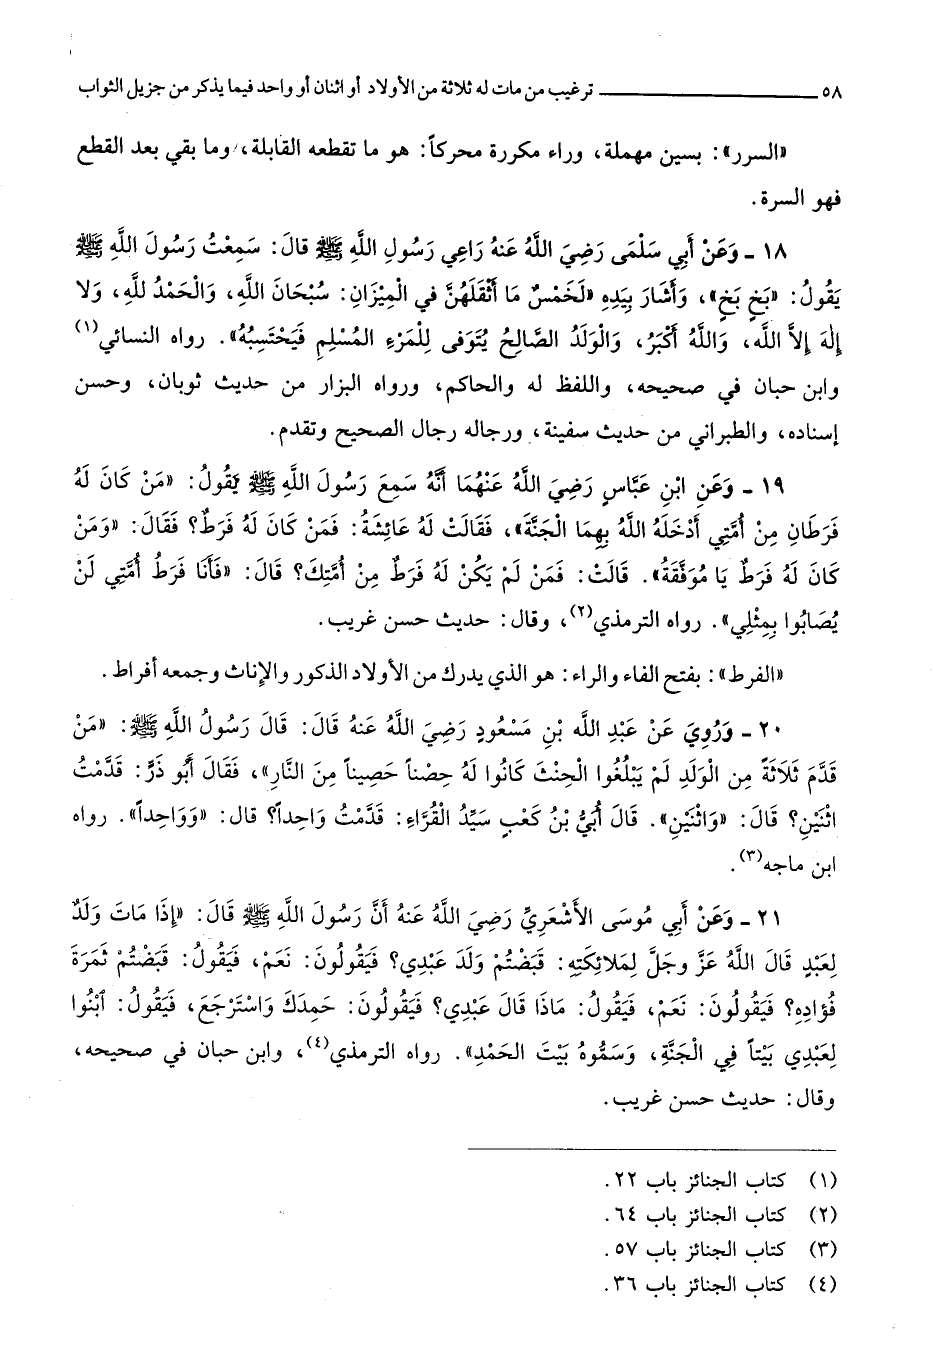 ٥٨ ــــــــ ترغيب من مات له ثلاثة من الأولاد أو اثنان أو واحد فيما يذكر من جزيل الثواب
«السرر»: بسين مهملة، وراء مكررة محركاً: هو ما تقطعه القابلة، وما بقي بعد القطع
فهو السرة.
١٨ ـ وَعَنْ أَبِي سَلْمَى رَضِيَ اللَّهُ عَنهُ رَاعِي رَسُولِ اللَّهِ ﷺ قالَ: سَمِعْتُ رَسُولَ اللَّهِ ﷺ
يَقُولُ: «بَخٍ بَخٍ»، وَأَشَارَ بِيَدِهِ «لَخَمْسٌ مَا أَثْقَلَهُنَّ في الْمِيْزَانِ: سُبْحَانَ اللَّهِ، وَالْحَمْدُ للَّهِ، وَلا
إلهَ إلاَّ اللَّه، وَاللَّهُ أَكْبَرُ، وَالْوَلَدُ الصَّالِحُ يُتَوَفى لِلْمَرْءِ المُسْلِمِ فَيَحْتَسِبُهُ». رواه النسائي(١)
وابن حبان في صحيحه، واللفظ له والحاكم، ورواه البزار من حديث ثوبان، وحسن
إسناده، والطبراني من حديث سفينة، ورجاله رجال الصحيح وتقدم.
١٩ ـ وَعَنِ ابْنِ عَبَّاسٍ رَضِيَ اللَّهُ عَنْهُمَا أَنَّهُ سَمِعَ رَسُولَ اللَّهِ ﷺ يَقُولُ: «مَنْ كَانَ لَهُ
فَرَطَانِ مِنْ أُمَّتِي أَدْخَلَهُ اللَّهُ بِهِمَا الْجَنَّةَ»، فَقَالَتْ لَهُ عَائِشَةُ: فَمَنْ كَانَ لَهُ فَرَطٌ؟ فَقَالَ: «وَمَنْ
كَانَ لَهُ فَرَطٌ يَا مُوَفَّقَةُ». قَالَتْ: فَمَنْ لَمْ يَكُنْ لَهُ فَرَطٌ مِنْ أُمَّتِكَ؟ قَالَ: «فَأَنَا فَرَطُ أُمَّتِي لَنْ
يُصَابُوا بِمِثْلِي». رواه الترمذي(٢)، وقال: حديث حسن غريب.
«الفرط»: بفتح الفاء والراء: هو الذي يدرك من الأولاد الذكور والإناث وجمعه أفراط.
٢٠ ـ وَرُوِيَ عَنْ عَبْدِ اللَّه بْنِ مَسْعُودٍ رَضِيَ اللَّهُ عَنهُ قَالَ: قَالَ رَسُولُ اللَّهِ ﷺ: «مَنْ
قَدَّمَ ثَلاَثَةً مِن الْوَلَدِ لَمْ يَبْلُغُوا الْحِنْثَ كَانُوا لَهُ حِصْناً حَصِيناً مِنَ النَّارِ»، فَقَالَ أَبُو ذَرٍّ: قَدَّمْتُ
اثْنَيْنِ؟ قَالَ: «وَاثْنَيْنِ». قَالَ أُبَيُّ بْنُ كَعْبٍ سَيِّدُ القُرَّاءِ: قَدَّمْتُ وَاحِداً؟ قال: «وَوَاحِداً». رواه
ابن ماجه(٣).
٢١ ـ وَعَنْ أَبِي مُوسَى الأَشْعَرِيِّ رَضِيَ اللَّهُ عَنهُ أَنَّ رَسُولَ اللَّهِ ﷺ قَالَ: «إِذَا مَاتَ وَلَدٌ
لِعَبْدٍ قَالَ اللَّهُ عَزَّ وجَلَّ لِمَلائِكَتِهِ: قَبَضْتُمْ وَلَدَ عَبْدِي؟ فَيَقُولُونَ: نَعَمْ، فَيَقُولُ: قَبَضْتُمْ ثَمَرَةَ
فُؤَادِهِ؟ فَيَقُولُونَ: نَعَمْ، فَيَقُولُ: مَاذَا قَالَ عَبْدِي؟ فَيَقُولُونَ: حَمِدَكَ وَاسْتَرْجَعَ، فَيَقُولُ: ابْنُوا
لِعَبْدِي بَيْتاً فِي الْجَنَّةِ، وَسَمُّوهُ بَيْتَ الحَمْدِ». رواه الترمذي(٤)، وابن حبان في صحيحه،
وقال: حديث حسن غريب.
(١) كتاب الجنائز باب ٢٢.
(٢) كتاب الجنائز باب ٦٤.
(٣) كتاب الجنائز باب ٥٧.
(٤) كتاب الجنائز باب ٣٦.